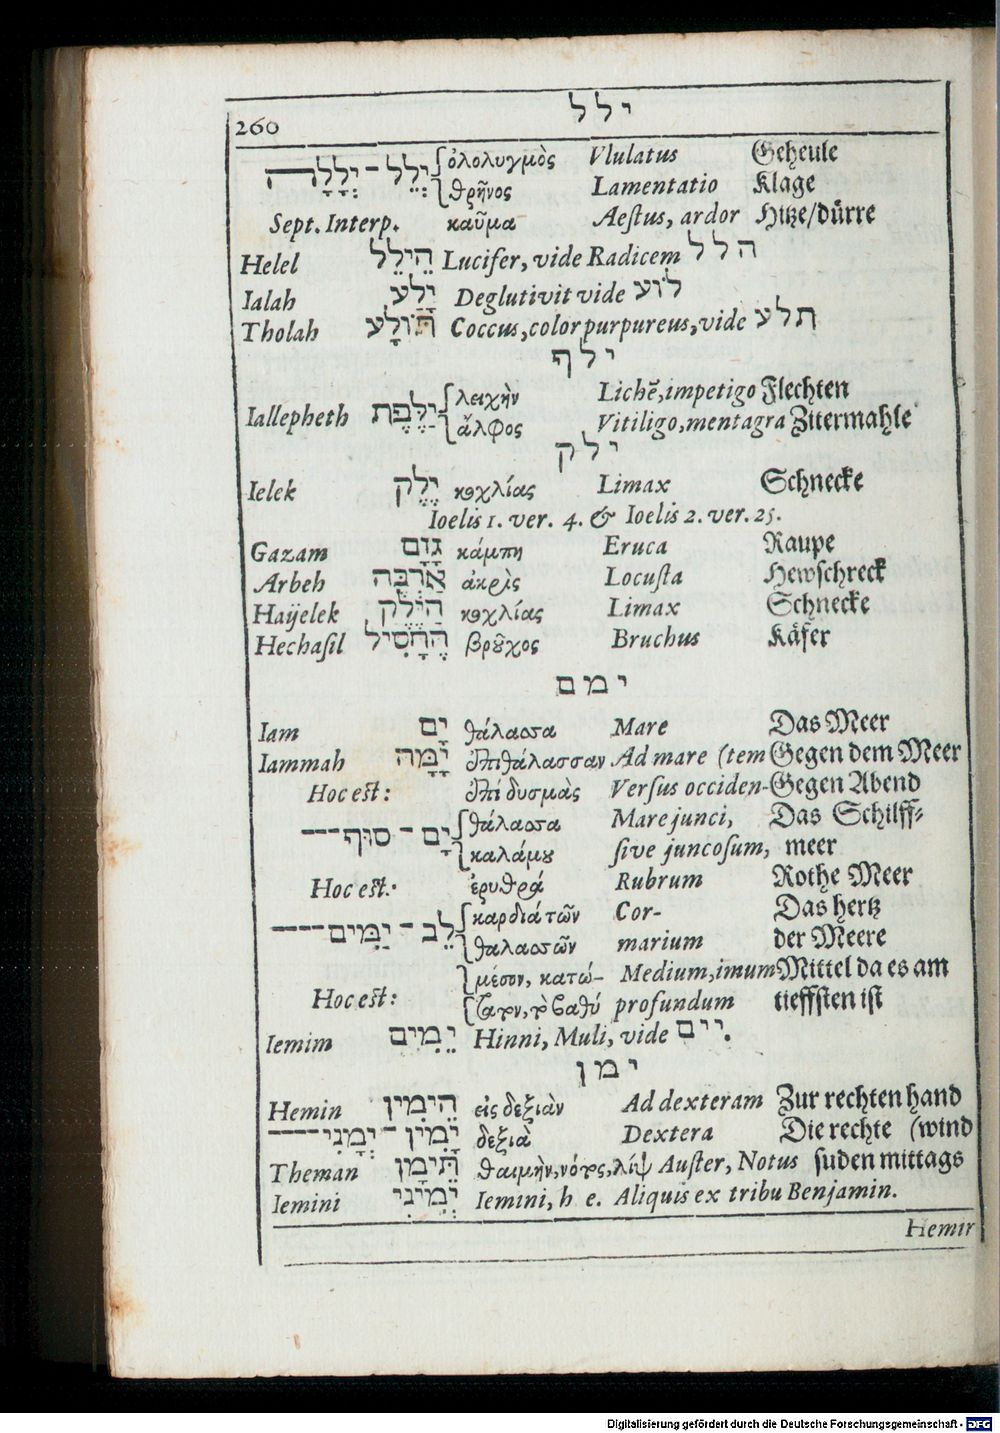 260 ילל
יְלֵל־יְלָלָה ὀλολυγμὸς Vlulatus Geheule
θρῆνος Lamentatio Klage
Sept. Interp. καῦμα Aeſtus, ardor Hitze/dürre
Helel הֵילֵל Lucifer, vide Radicem הלל
Ialah יָלַע Deglutivit vide לוע
Tholah תּוֹלָע Coccus, color purpureus, vide תלע
ילף
Iallepheth יַלֶּפֶת λειχὴν Lichē, impetigo Flechten
ἄλφος Vitiligo, mentagra Zitermahle
ילק
Ielek יֶלֶק κοχλίας Limax Schnecke
Ioelis 1. ver. 4. & Ioelis 2. ver. 25.
Gazam גָּזָם κάμπη Eruca Raupe
Arbeh אַרְבֶּה ἀκρὶς Locuſta Hewſchreck
Haÿelek הַיֶּלֶק κοχλίας Limax Schnecke
Hechaſil הֶחָסִיל βροῦχος Bruchus Käfer
ימם
Iam יָם θάλασσα Mare Das Meer
Iammah יָמָּה ἐπιθάλασσαν Ad mare (tem Gegen dem Meer
Hoc eſt: ἐπὶ δυσμὰς Verſus occiden- Gegen Abend
יָם־סוּף--- θάλασσα Mare junci, Das Schilff⸗
καλάμου ſive juncoſum, meer
Hoc eſt: ἐρυθρά Rubrum Rothe Meer
לֵב־יַמִּים---- καρδιά τῶν Cor- Das hertz
θαλασσῶν marium der Meere
μέσον, κατώ- Medium, imum Mittel da es am
Hoc eſt: profundum tieffſten iſt
Iemim יֵמִים Hinni, Muli, vide יים.
ימן
Hemin הֵימִין εἰς δεξιὰν Ad dexteram Zur rechten hand
יָמִין־יְמָנִי---- δεξιὰ Dextera Die rechte (wind
Theman תֵּימָן θαιμὴν, νότος, λίψ Auſter, Notus ſuden mittags
Iemini יְמִינִי Iemini, h e. Aliquis ex tribu Benjamin.
Hemir
Digitalisierung gefördert durch die Deutsche Forschungsgemeinschaft - DFG